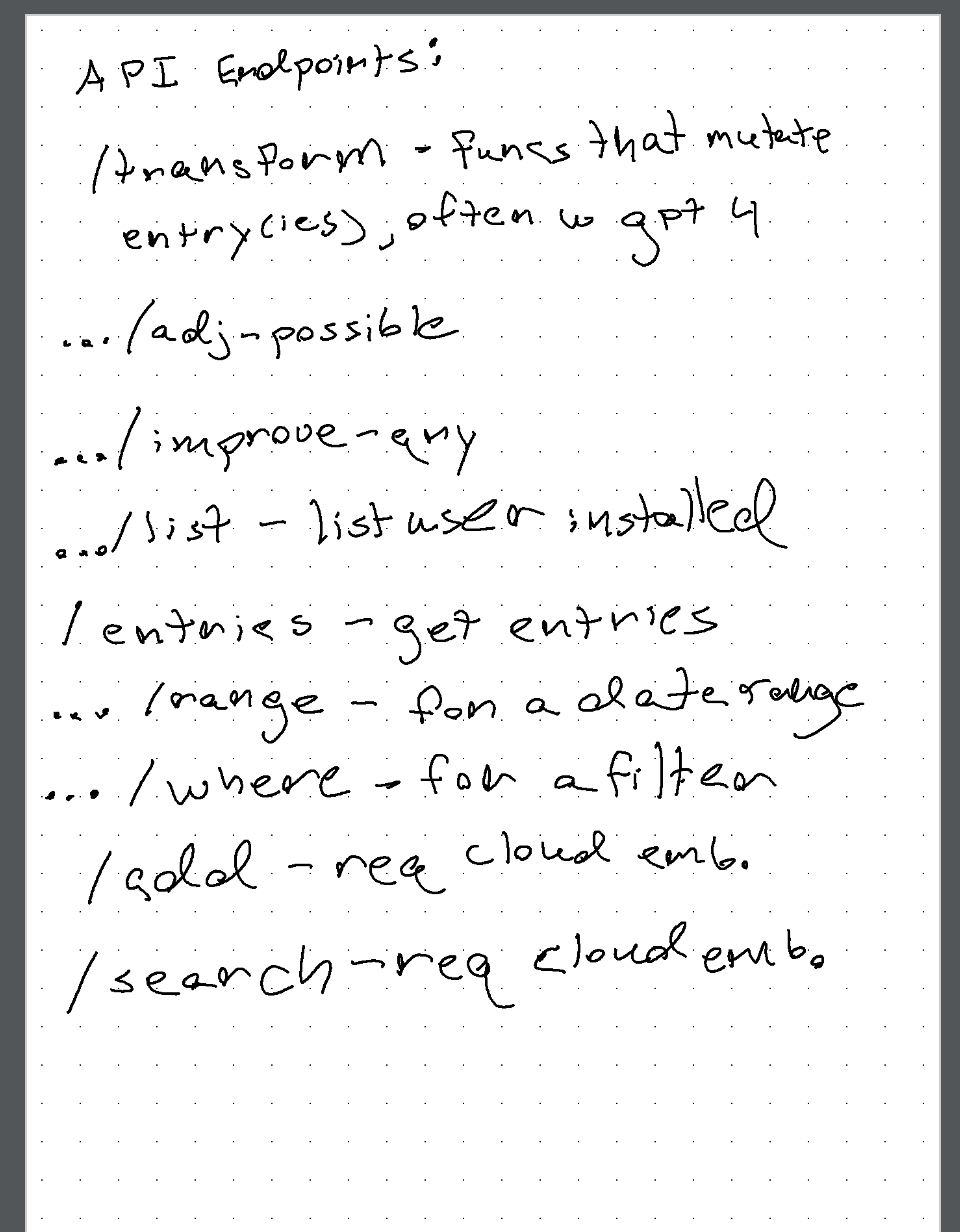 API Endpoints:
/transform - funcs that mutate
entry(ies), often w gpt 4
.../adj-possible
.../improve-any
.../list - list user installed
/entries - get entries
.../range - for a date range
.../where - for a filter
/add - req cloud emb.
/search - req cloud emb.